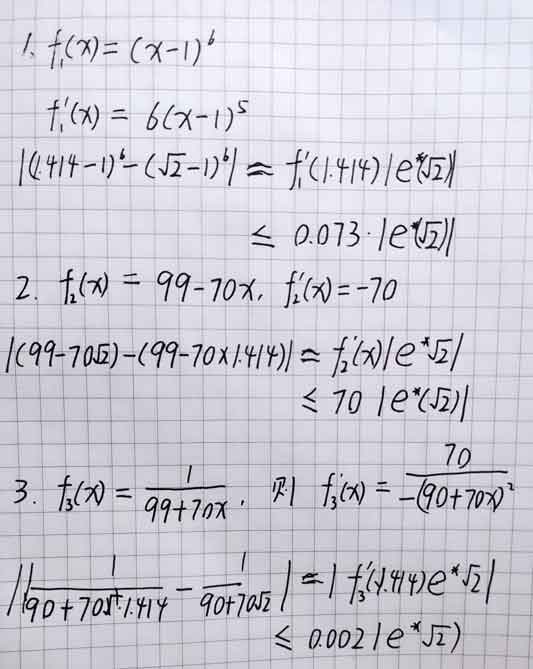 1. f₁(x) = (x-1)⁶
f₁'(x) = 6(x-1)⁵
|(1.414-1)⁶-(√2-1)⁶| ≈ f₁'(1.414)|e*(√2)|
≤ 0.073·|e*(√2)|
2. f₂(x) = 99-70x, f₂'(x)=-70
|(99-70√2)-(99-70×1.414)| ≈ f₂'(x)|e*√2|
≤ 70 |e*(√2)|
3. f₃(x) = 1/(99+70x), 则 f₃'(x) = 70/-(90+70x)²
|1/(90+70×1.414) - 1/(90+70√2)| ≈ |f₃'(1.414)e*√2|
≤ 0.002|e*√2)